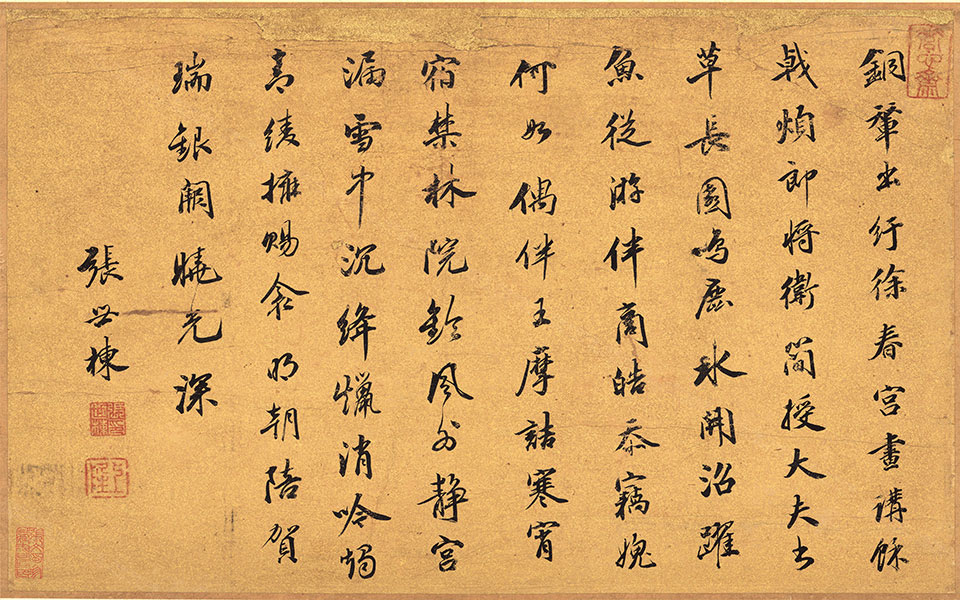 銅輦出行徐春宮晝講餘
戟煩郎將衛簡授大夫書
草長園鳴鹿冰開沼躍
魚從游伴商皓忝竊媿
何如偶伴王摩詰寒宵
宿禁林院鈴風外靜宮
漏雪中沉絳蠟消吟燭
青綾擁賜衾明朝陪賀
瑞銀闕曉光深
張世棟